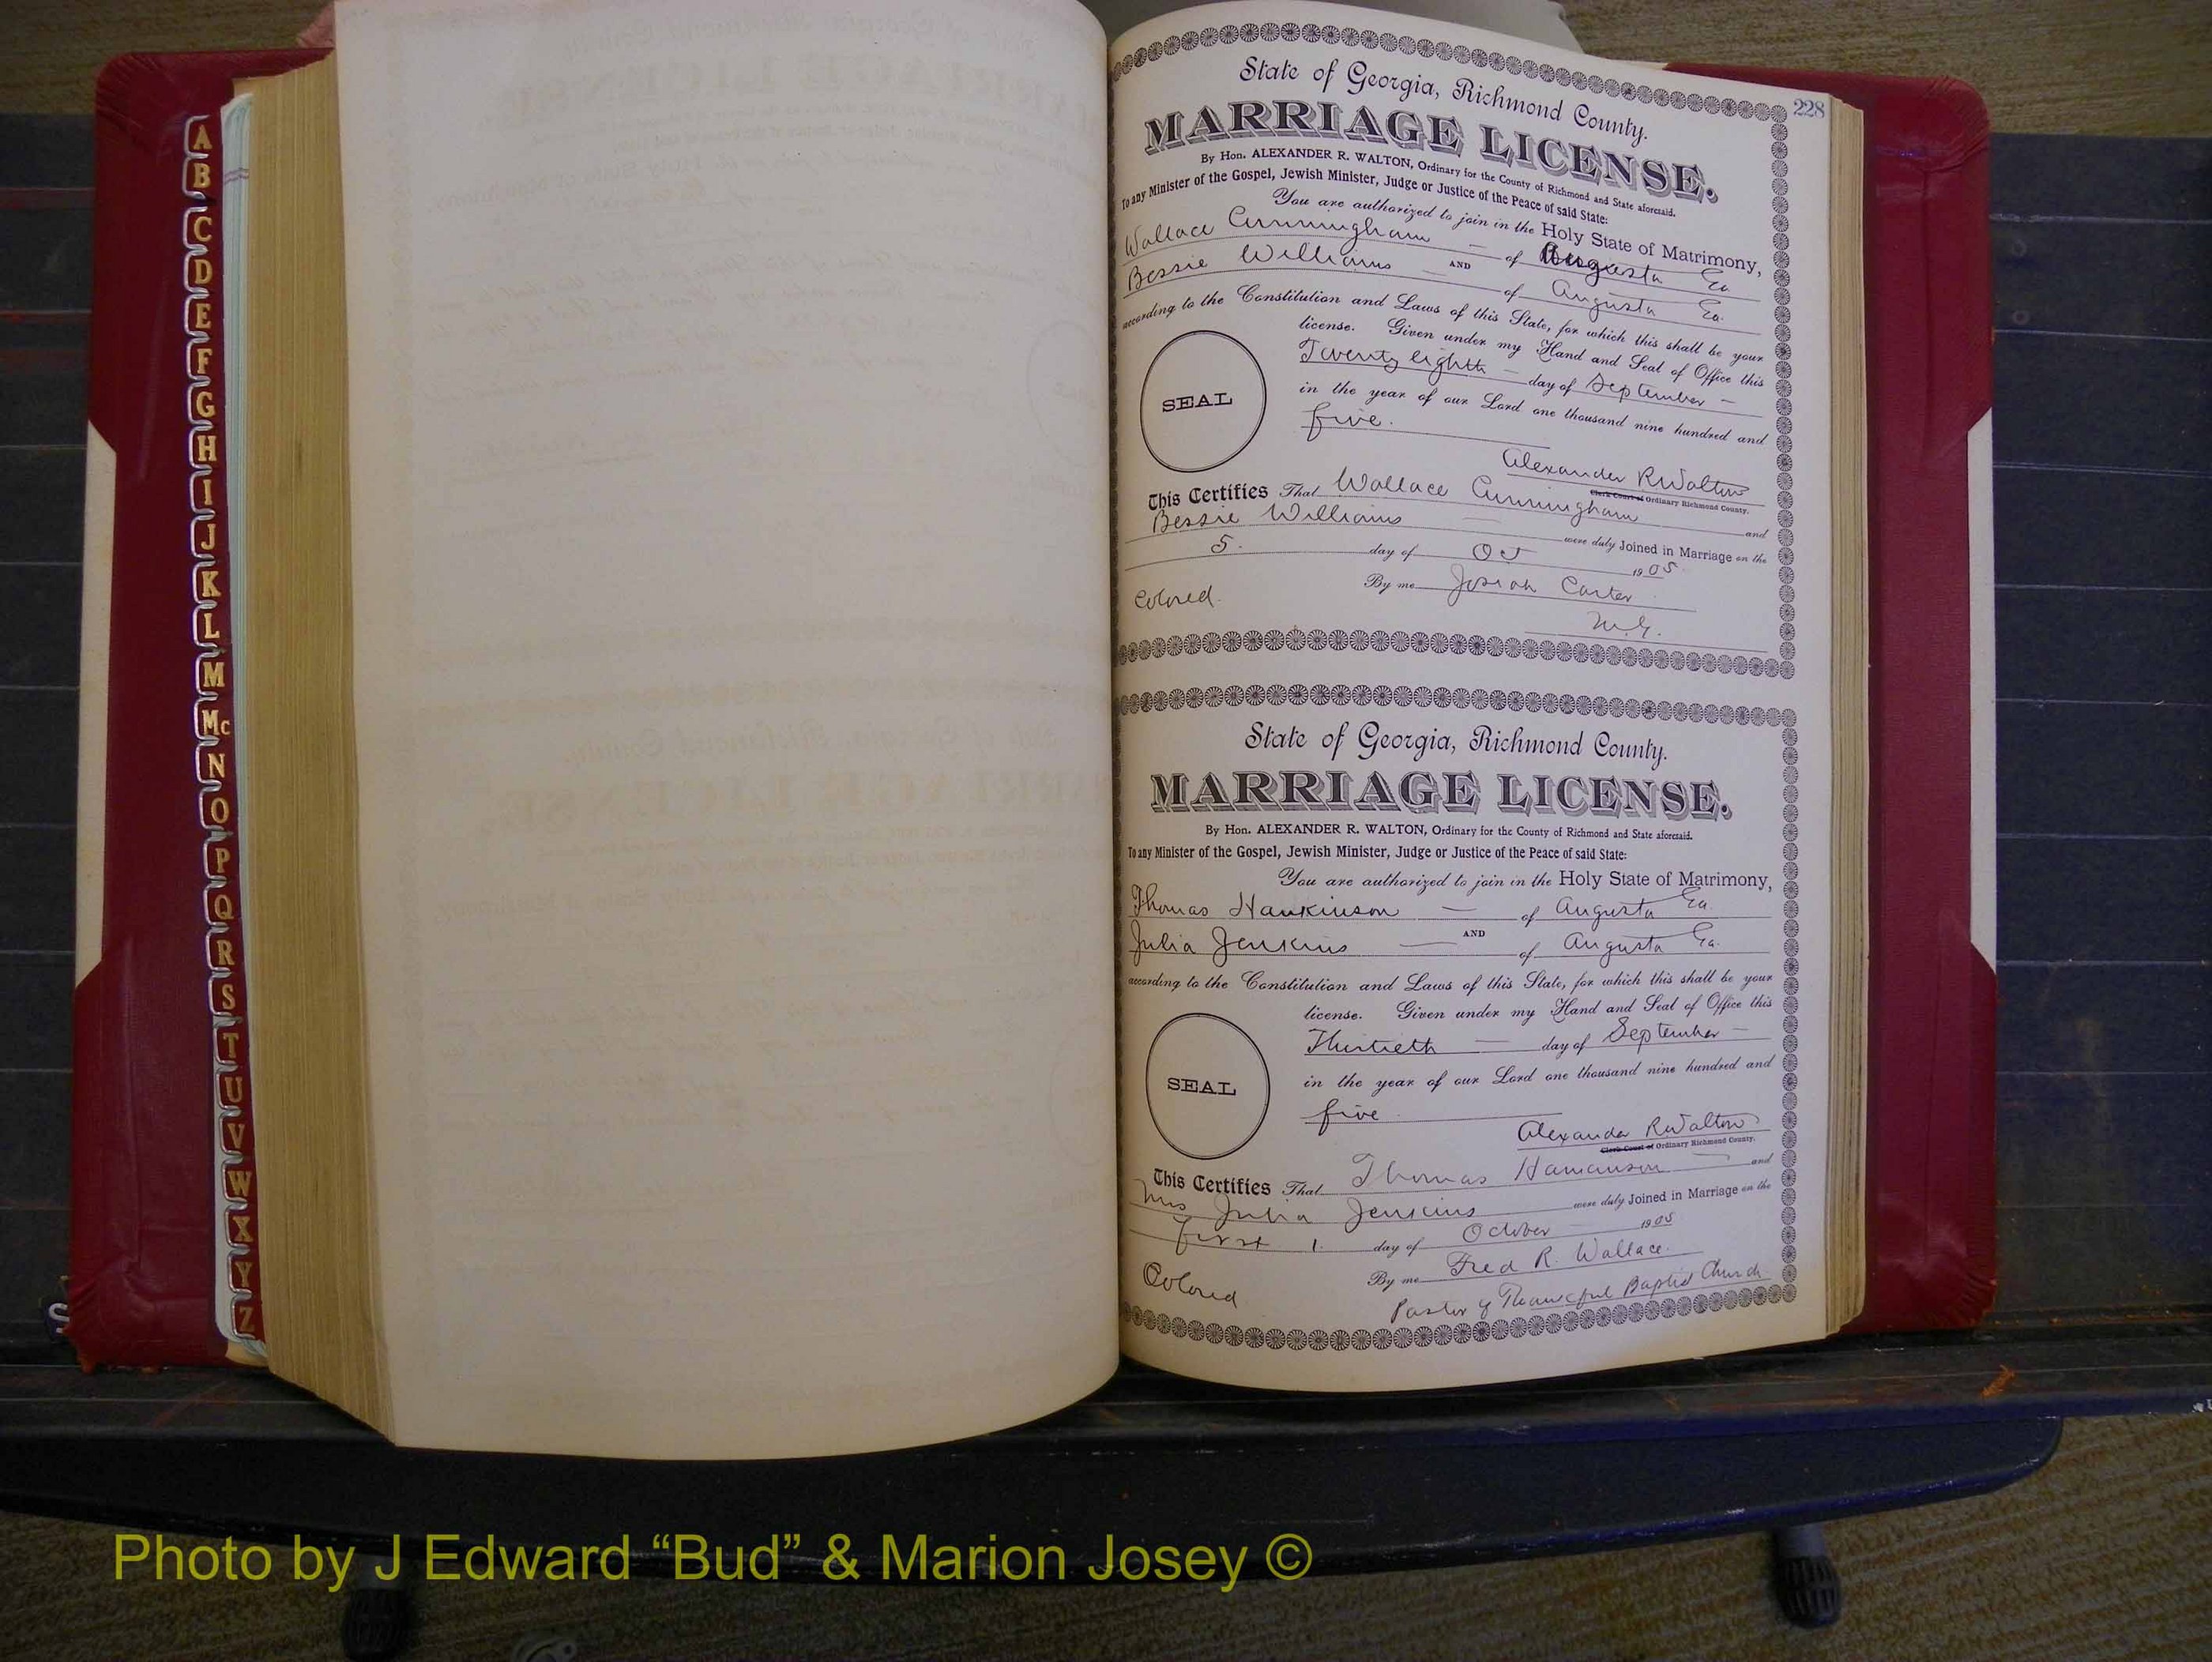 A
B
C
D
E
F
G
H
I
J
K
L
M
Mc
N
O
P
Q
R
S
T
U
V
W
X
Y
Z
228
State of Georgia, Richmond County.
MARRIAGE LICENSE.
By Hon. ALEXANDER R. WALTON, Ordinary for the County of Richmond and State aforesaid.
To any Minister of the Gospel, Jewish Minister, Judge or Justice of the Peace of said State:
You are authorized to join in the Holy State of Matrimony,
Wallace Cunningham — of Augusta Ga
AND
Bessie Williams — of Augusta Ga.
according to the Constitution and Laws of this State, for which this shall be your
license. Given under my Hand and Seal of Office this
Twenty eighth — day of September —
in the year of our Lord one thousand nine hundred and
five.
SEAL
Alexander R Walton
Clerk Court of Ordinary Richmond County.
This Certifies That Wallace Cunningham and
Bessie Williams — were duly Joined in Marriage on the
5. day of Oct 1905.
By me Josiah Carter
Colored. M.G.
State of Georgia, Richmond County.
MARRIAGE LICENSE.
By Hon. ALEXANDER R. WALTON, Ordinary for the County of Richmond and State aforesaid.
To any Minister of the Gospel, Jewish Minister, Judge or Justice of the Peace of said State:
You are authorized to join in the Holy State of Matrimony,
Thomas Hankinson — of Augusta Ga.
AND
Julia Jenkins — of Augusta Ga.
according to the Constitution and Laws of this State, for which this shall be your
license. Given under my Hand and Seal of Office this
Thirtieth — day of September —
in the year of our Lord one thousand nine hundred and
five.
SEAL
Alexander R Walton
Clerk Court of Ordinary Richmond County.
This Certifies That Thomas Hankinson — and
Mrs Julia Jenkins were duly Joined in Marriage on the
First 1. day of October 1905
By me Fred R. Wallace.
Colored Pastor of Thankful Baptist Church
Photo by J Edward “Bud” & Marion Josey ©